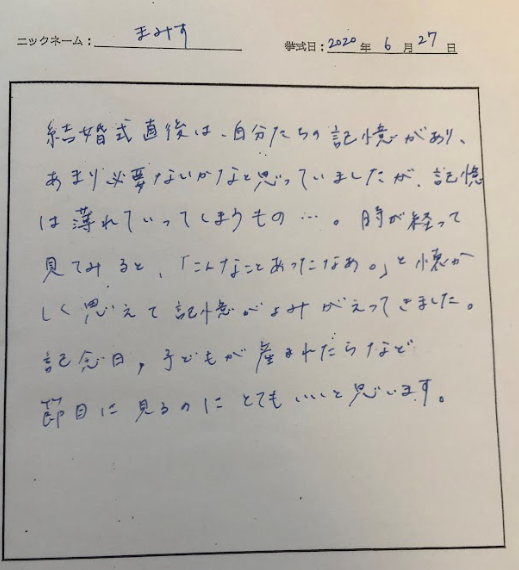 ニックネーム: まみす 挙式日: 2020 年 6 月 27 日
結婚式直後は、自分たちの記憶があり、
あまり必要ないかなと思っていましたが、記憶
は薄れていってしまうもの…。時が経って
見てみると、「こんなことあったなあ。」と懐か
しく思えて記憶がよみがえってきました。
記念日，子どもが産まれたらなど
節目に見るのにとてもいいと思います。